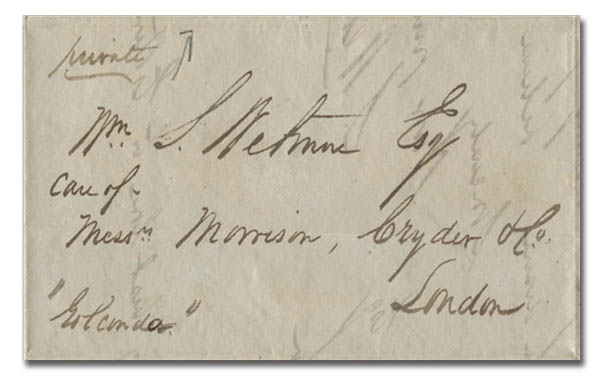 private
Wm. S. Wetmore Esq
Care of
Messrs Morrison, Cryder & Co.
London
"Golconda."